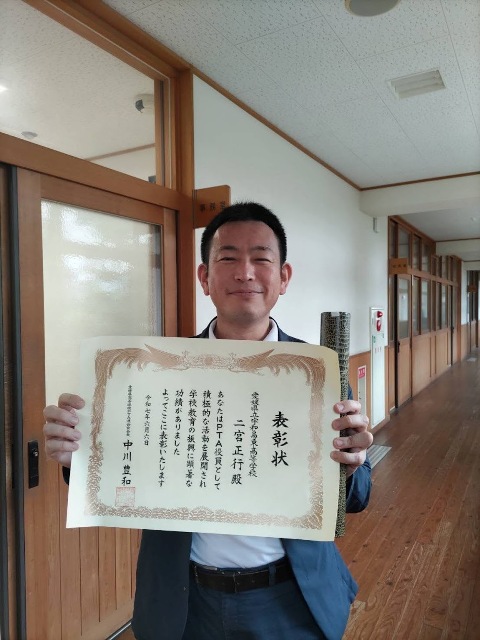 表彰状
愛媛県立宇和島東高等学校
二宮正行殿
あなたはPTA役員として
積極的な活動を展開され
学校教育の振興に顕著な
功績がありました
よってここに表彰いたします
令和七年六月六日
中川豊和